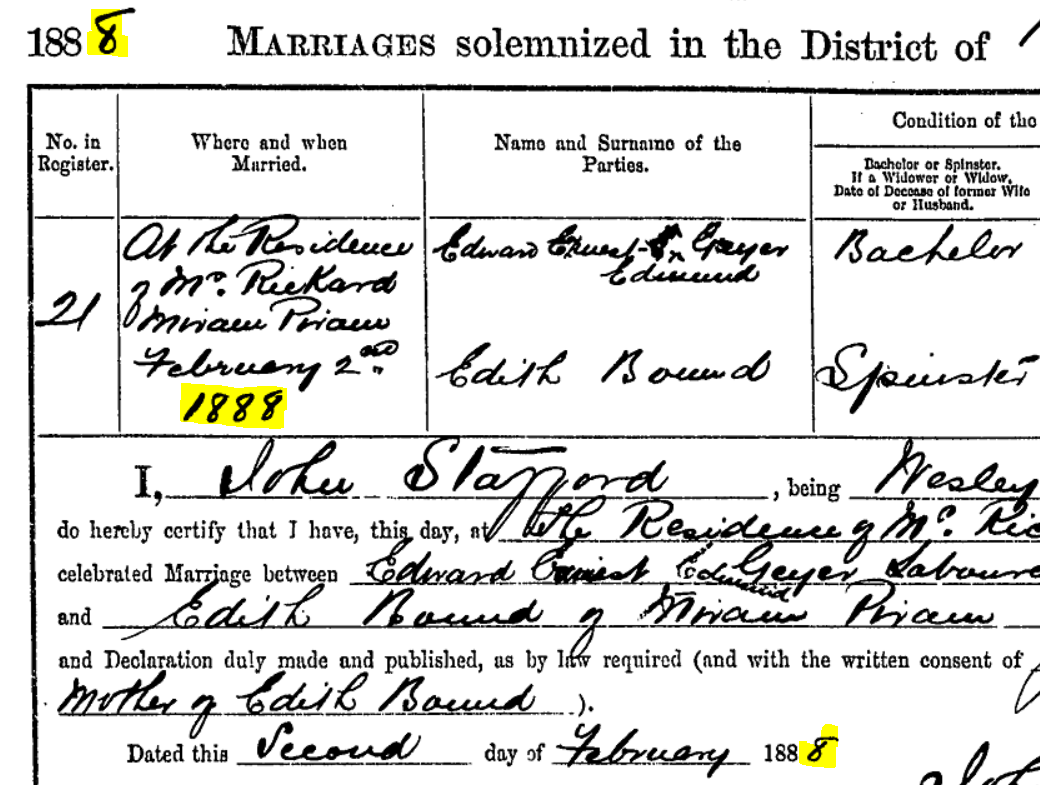 1888 MARRIAGES solemnized in the District of
No. in Register.
Where and when Married.
Name and Surname of the Parties.
Condition of the
Bachelor or Spinster.
If a Widower or Widow,
Date of Decease of former Wife
or Husband.
21
At the Residence
of Mr. Rickard
Miriam Piriam
February 2nd
1888
Edward Ernest Geyer
Edmund
Bachelor
Edith Bound
Spinster
I, John Stafford, being Wesley
do hereby certify that I have, this day, at the Residence of Mr. Ric
celebrated Marriage between Edward Ernest Edmund Geyer Laboure
and Edith Bound of Miriam Piriam
and Declaration duly made and published, as by law required (and with the written consent of
Mother of Edith Bound ).
Dated this Second day of February 1888